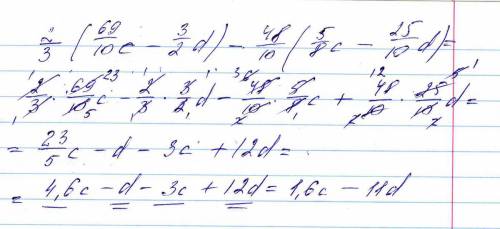 2/3 (69/10 c − 3/2 d) − 48/10 (5/8 c − 25/10 d) =
2/3 · 69/10 c − 2/3 · 3/2 d − 48/10 · 5/8 c + 48/10 · 25/10 d =
= 23/5 c − d − 3c + 12d =
= 4,6c − d − 3c + 12d = 1,6c − 11d